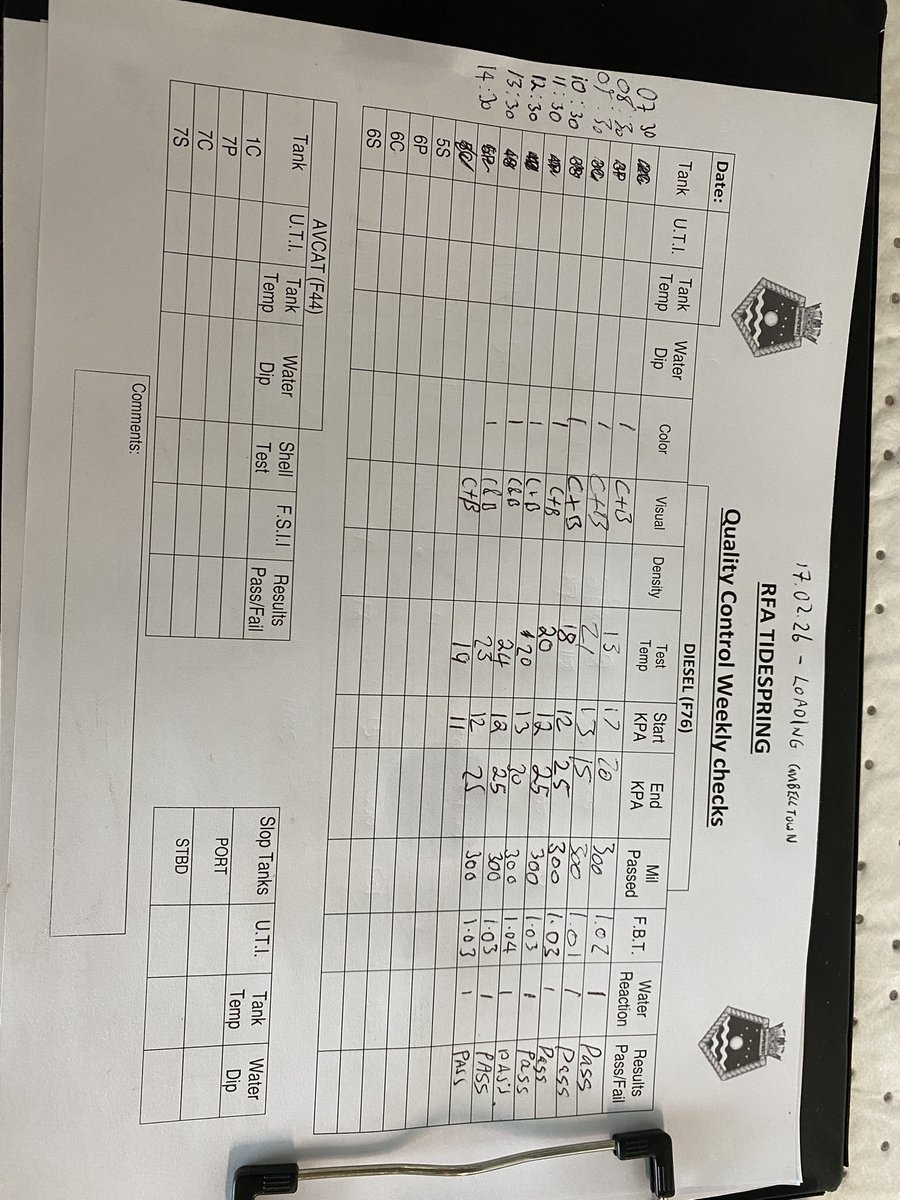 17.02.26 - LOADING CAMBELLTOWN
RFA TIDESPRING
Quality Control Weekly checks
Date:
DIESEL (F76)
Tank U.T.I. Tank Temp Water Dip Color Visual Density Test Temp Start KPA End KPA Mil Passed F.B.T. Water Reaction Results Pass/Fail
07 30 1 C+B 13 17 20 300 1.02 1 Pass
08:30 1 C+B 21 13 15 300 1.01 1 Pass
09:30 1 C+B 18 12 25 300 1.03 1 Pass
10:30 1 C+B 20 12 25 300 1.03 1 Pass
11:30 1 C+B 20 13 30 300 1.04 1 PASS
12:30 1 C&B 24 12 25 300 1.03 1 PASS
13:30 1 C&B 23 12 25 300 1.03 1 PASS
14:30 C+B 19 11
5S
6P
6C
6S
AVCAT (F44)
Tank U.T.I. Tank Temp Water Dip Shell Test F.S.I.I Results Pass/Fail
1C
7P
7C
7S
Slop Tanks U.T.I. Tank Temp Water Dip
PORT
STBD
Comments: